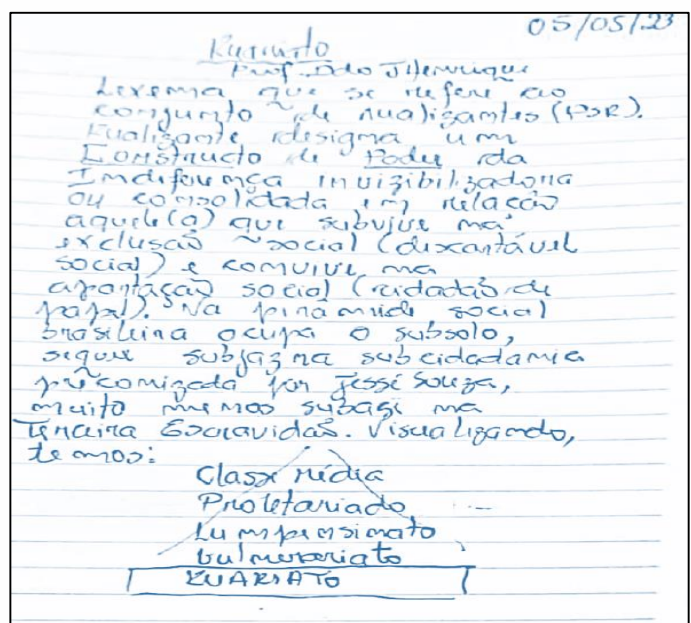 05/05/23
Prof. João J Henrique
Lexema que se refere ao
conjunto de rualizantes (PSR).
Rualizante designa um
Constructo de Poder da
Indiferença invizibilizadora
ou consolidada em relação
aquele(a) que subvive na
exclusão social (descartável
social) e convive na
apartação social (cidadão de
papel). Na pirâmide social
brasileira ocupa o subsolo,
sequer subjaz na subcidadania
preconizada por Jessé Souza,
muito menos subage na
Terceira Escravidão. Visualizando,
temos:
Classe média
Proletariado
Lumpensinato